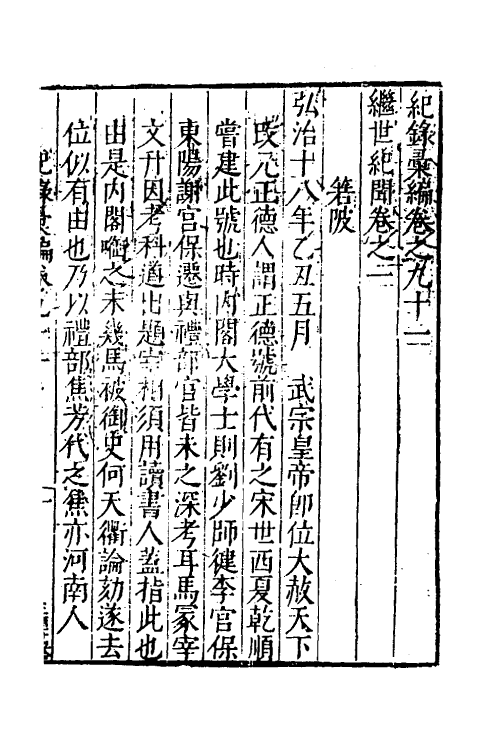 紀錄彙編卷之九十二
繼世紀聞卷之二
弘治十八年乙丑五月　武宗皇帝即位大赦天下
改元正德人謂正德號前代有之宋世西夏乾順
嘗建此號也時內閣大學士則劉少師健李宮保
東陽謝宮保遷與禮部官皆未之深考耳馬冡宰
文升因考科道出題宰相須用讀書人蓋指此也
由是內閣啣之未幾馬被御史何天衢論劾遂去
位似有由也乃以禮部焦芳代之焦亦河南人
紀錄彙編卷九十二